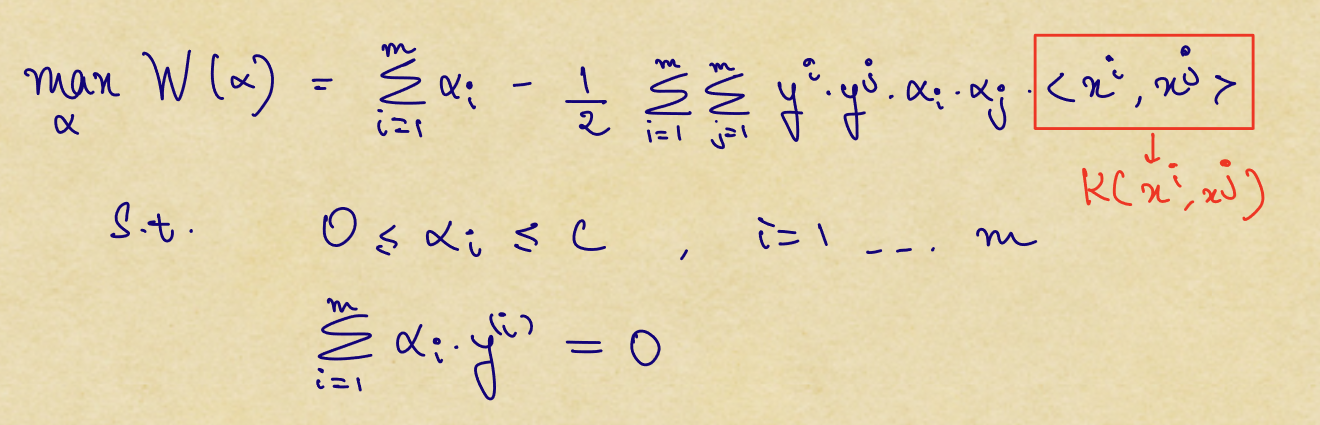 max W(α) = Σ_{i=1}^{m} α_i - 1/2 Σ_{i=1}^{m} Σ_{j=1}^{m} y^i · y^j · α_i · α_j · <x^i, x^j>
α
↓
K(x^i, x^j)
S.t. 0 ≤ α_i ≤ C , i=1 --- m
Σ_{i=1}^{m} α_i · y^{(i)} = 0